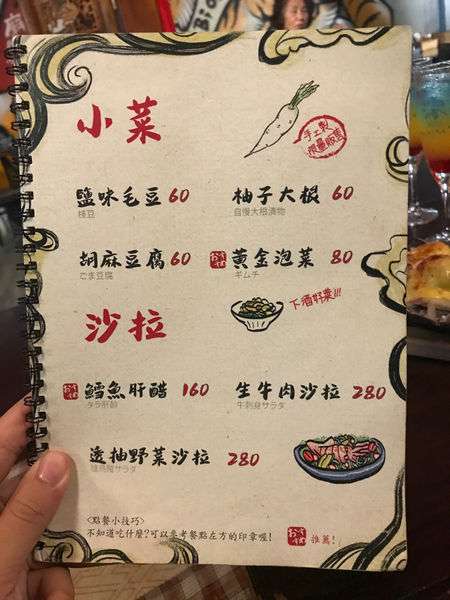 小菜
手工製
限量販售
鹽味毛豆 60
枝豆
柚子大根 60
自慢大根漬物
胡麻豆腐 60
ごま豆腐
おすすめ 黃金泡菜 80
キムチ
沙拉
下酒好菜!!!
おすすめ 鱈魚肝醋 160
タラ肝酢
生牛肉沙拉 280
牛刺身サラダ
透抽野菜沙拉 280
<點餐小技巧>
不知道吃什麼?可以參考餐點左方的印章喔!
おすすめ 推薦!